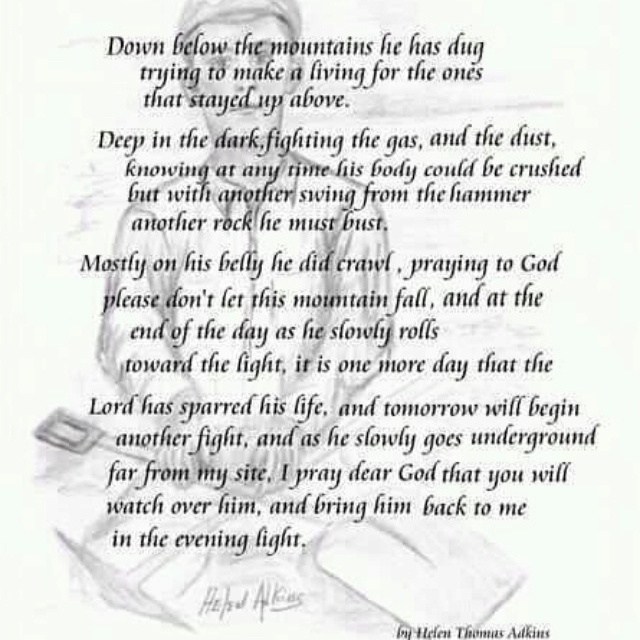 Down below the mountains he has dug
trying to make a living for the ones
that stayed up above.
Deep in the dark,fighting the gas, and the dust,
knowing at any time his body could be crushed
but with another swing from the hammer
another rock he must bust.
Mostly on his belly he did crawl, praying to God
please don't let this mountain fall, and at the
end of the day as he slowly rolls
toward the light, it is one more day that the
Lord has sparred his life, and tomorrow will begin
another fight, and as he slowly goes underground
far from my site, I pray dear God that you will
watch over him, and bring him back to me
in the evening light.
Helen Adkins
by Helen Thomas Adkins